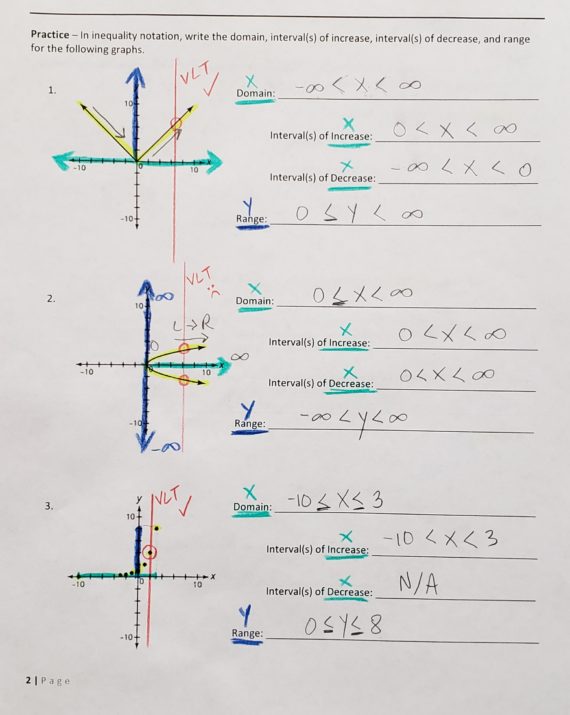 Practice – In inequality notation, write the domain, interval(s) of increase, interval(s) of decrease, and range
for the following graphs.
1.
VLT ✓
10
-10
10
x
-10
X
Domain: -∞ < X < ∞
X
Interval(s) of Increase: 0 < X < ∞
X
Interval(s) of Decrease: -∞ < X < 0
Y
Range: 0 ≤ Y < ∞
2.
∞
VLT
10
L→R
0
∞
-10
10
x
-10
-∞
X
Domain: 0 ≤ X < ∞
X
Interval(s) of Increase: 0 < X < ∞
X
Interval(s) of Decrease: 0 < X < ∞
Y
Range: -∞ < y < ∞
3.
y
VLT ✓
10
-10
0
10
x
-10
X
Domain: -10 ≤ X ≤ 3
X
Interval(s) of Increase: -10 < X < 3
X
Interval(s) of Decrease: N/A
Y
Range: 0 ≤ Y ≤ 8
2 | Page